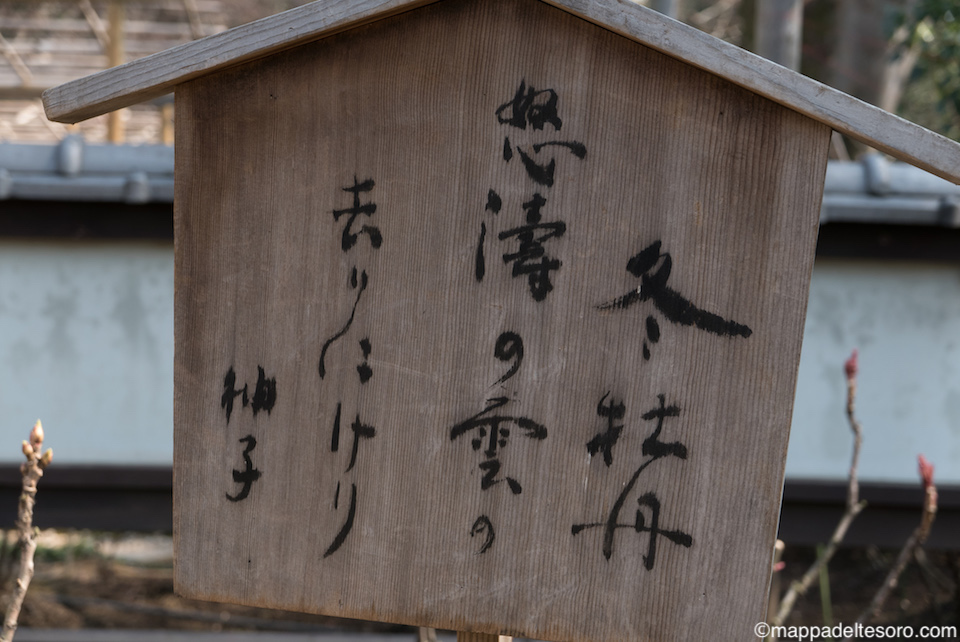 冬牡丹
怒濤の雲の
去りにけり
柚子
©mappadeltesoro.com